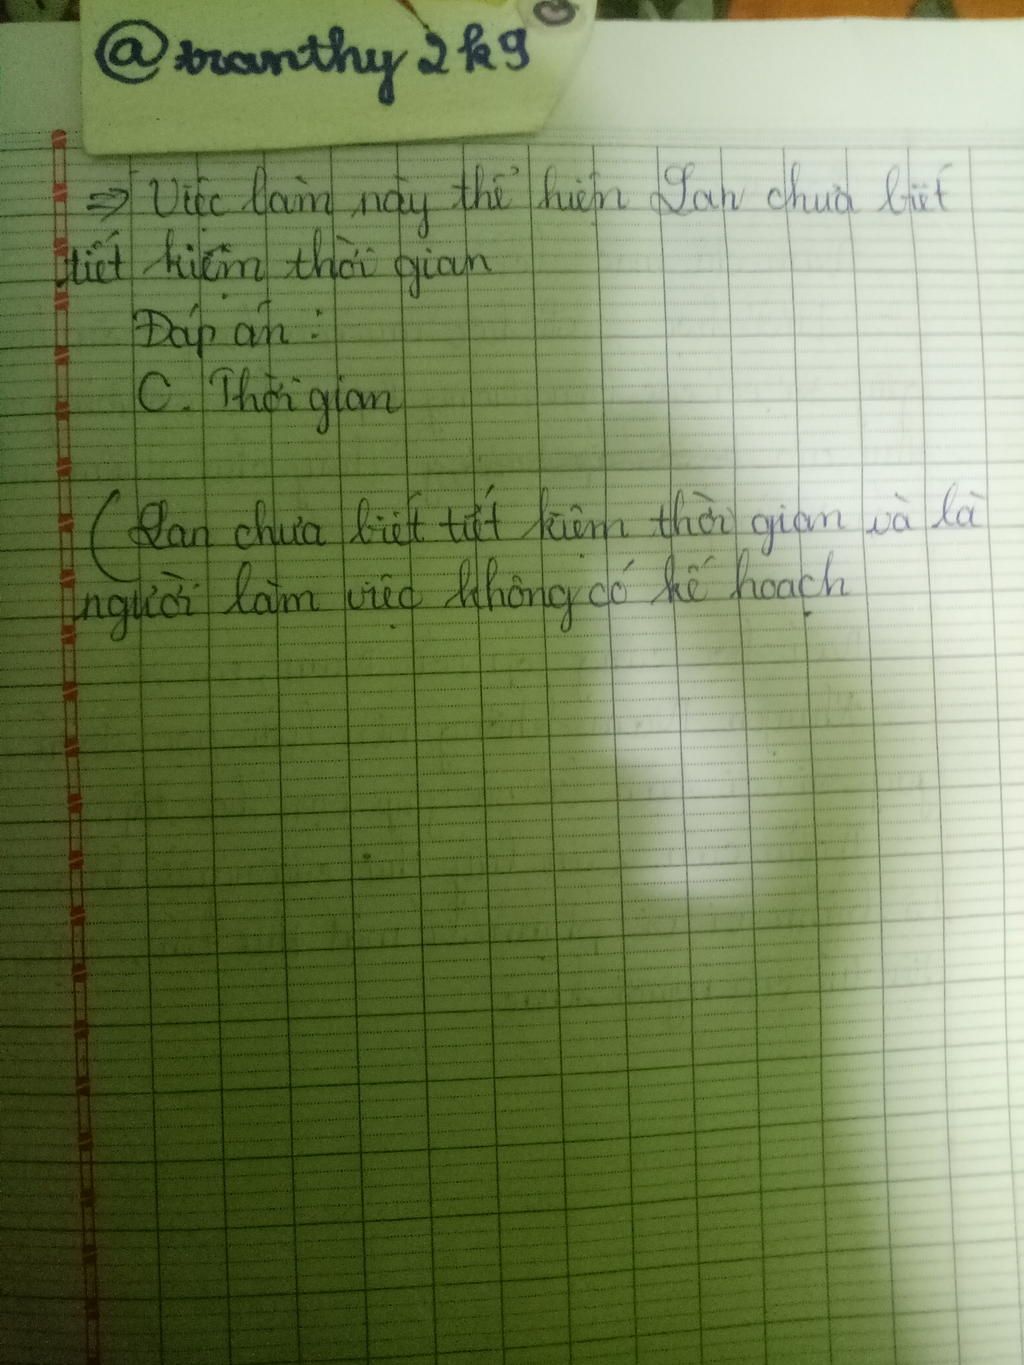 @tranthy2k9
⇒ Việc làm này thể hiện Lan chưa biết
tiết kiệm thời gian
Đáp án :
C. Thời gian
( Lan chưa biết tiết kiệm thời gian và là
người làm việc không có kế hoạch